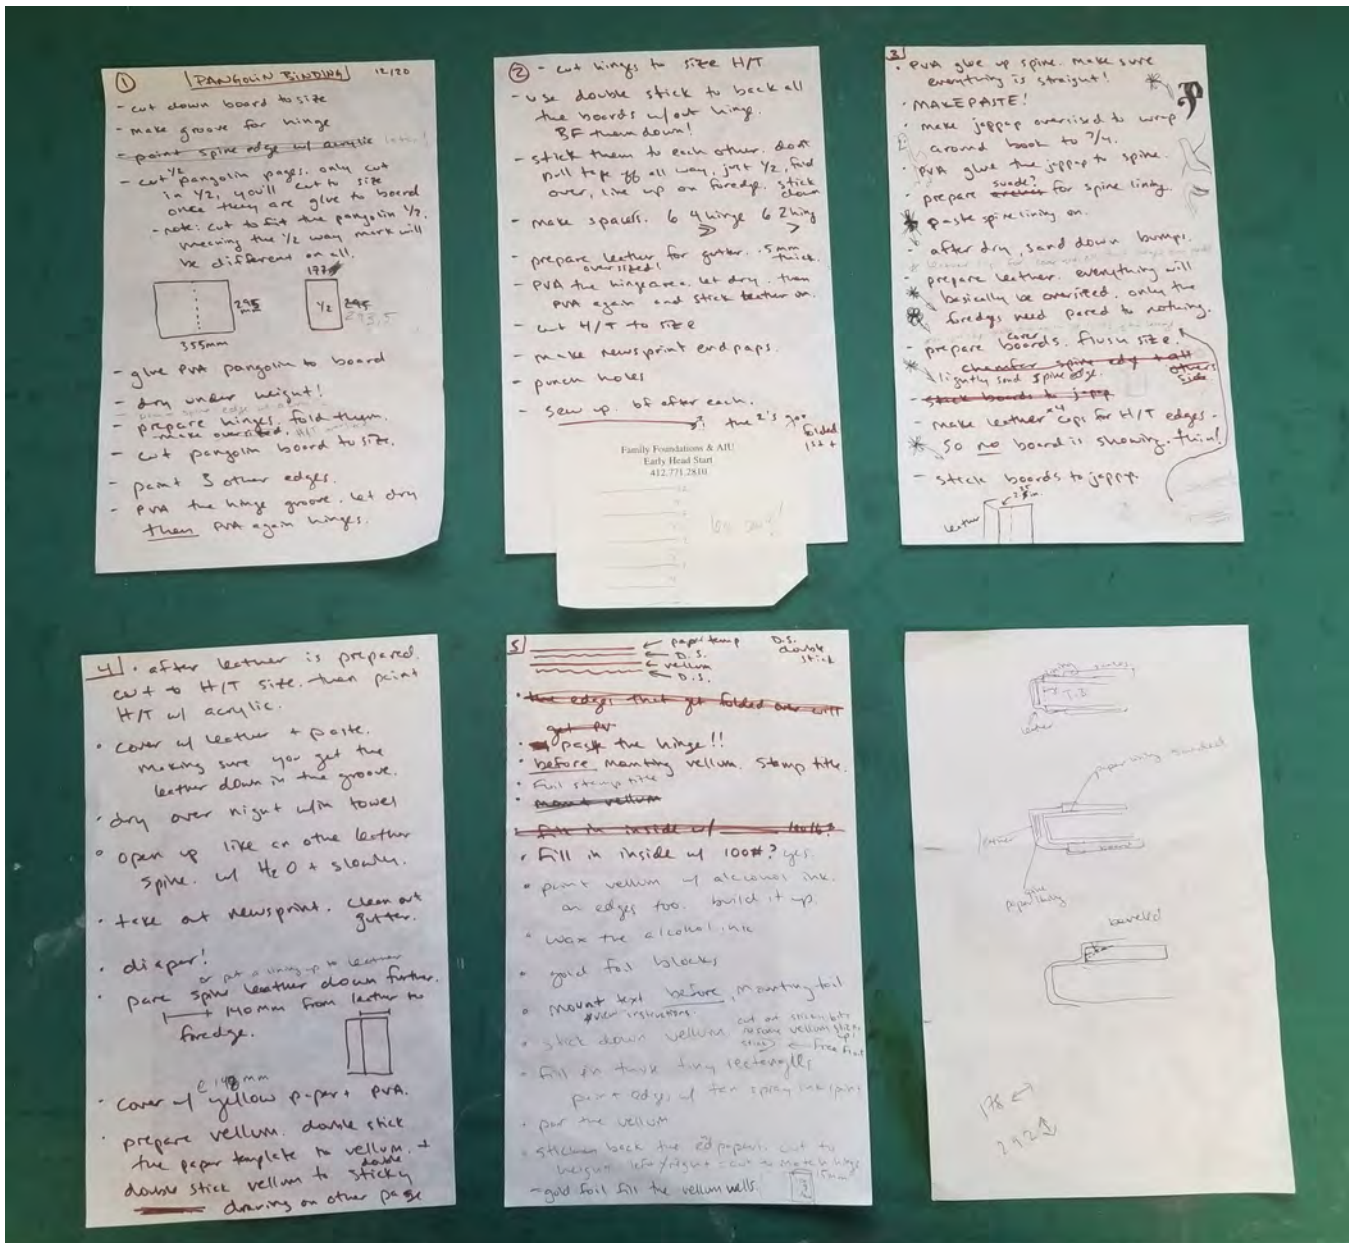 ① PANGOLIN BINDING 12/20
- cut down board to size
- make groove for hinge
- paint spine edge w/ acrylic later!
- cut 1/2 pangolin pages. only cut
in 1/2, you'll cut to size
once they are glue to board
- note: cut to fit the pangolin 1/2.
meaning the 1/2 way mark will
be different on all.
177
295
1/2
295
293.5
355mm
- glue PVA pangolin to board
- dry under weight!
- prepare hinges, fold them.
- make oversized, H/T
- cut pangolin board to size.
- paint 3 other edges.
- PVA the hinge groove. let dry
then PVA again hinges.
② - cut hinges to size H/T
- use double stick to back all
the boards w/out hinge.
BF them down!
- stick them to each other. dont
pull tape off all way, just 1/2, fold
over, line up on foredge. stick
down
- make spacers. 6 4 hinge 6 2 hing
- prepare leather for gutter. .5mm
oversized! thick.
- PVA the hinge area. let dry. then
PVA again and stick leather on.
- cut H/T to size
- make newsprint endpaps.
- punch holes
- sew up. bf after each.
the 2's go
folded
Family Foundations & AIU
Early Head Start
412.771.2810
3
• PVA glue up spine. Make sure
everything is straight!
• MAKE PASTE!
• make jappap oversized to wrap
around book to 3/4.
• PVA glue the jappap to spine.
suede?
- prepare for spine lining.
• paste spine lining on.
- after dry, sand down bumps.
- prepare leather. everything will
basically be oversized. only the
foredges need pared to nothing.
cover
- prepare boards. flush size.
chamfer spine edge + all
others
side
lightly sand spine edge.
- stick boards to jappap
- make leather x4 caps for H/T edges -
so no board is showing. thin!
- stick boards to jappap.
leather
4 • after leather is prepared.
cut to H/T size. then paint
H/T w/ acrylic.
• cover w/ leather + paste.
making sure you get the
leather down in the groove.
• dry over night w/in towel
• open up like an othe leather
spine. w/ H2O + slowly.
• take out newsprint. clean out
gutter.
• diaper!
or put a lining up to leather
• pare spine leather down further.
140mm from leather to
foredge.
• cover w/ yellow paper + PVA.
• prepare vellum. double stick
the paper template to vellum. +
double
double stick vellum to sticky
drawing on other page
5
paper temp
D.S.
vellum
D.S.
D.S.
double
stick
• the edges that get folded over will
get PV
• paste the hinge!!
• before mounting vellum. Stamp title.
• Foil stamp title
• mount vellum
• fill in inside w/
• Fill in inside w/ 100#? yes.
• paint vellum w/ alcohol ink.
on edges too. build it up.
• wax the alcohol ink
• gold foil blocks
• mount text before mounting foil
view instructions.
• stick down vellum
cut out sticky bits
• fill in tiny rectangles
paint edges w/ ten spray ink/paint
• par the vellum
back the paper. cut to
height. left/right = cut to match hinge
15mm
- gold foil fill the vellum wells.
T.B.
leather
paper lining sanded
leather
board
glue
paper lining
beveled
178 ↔
292 ↕